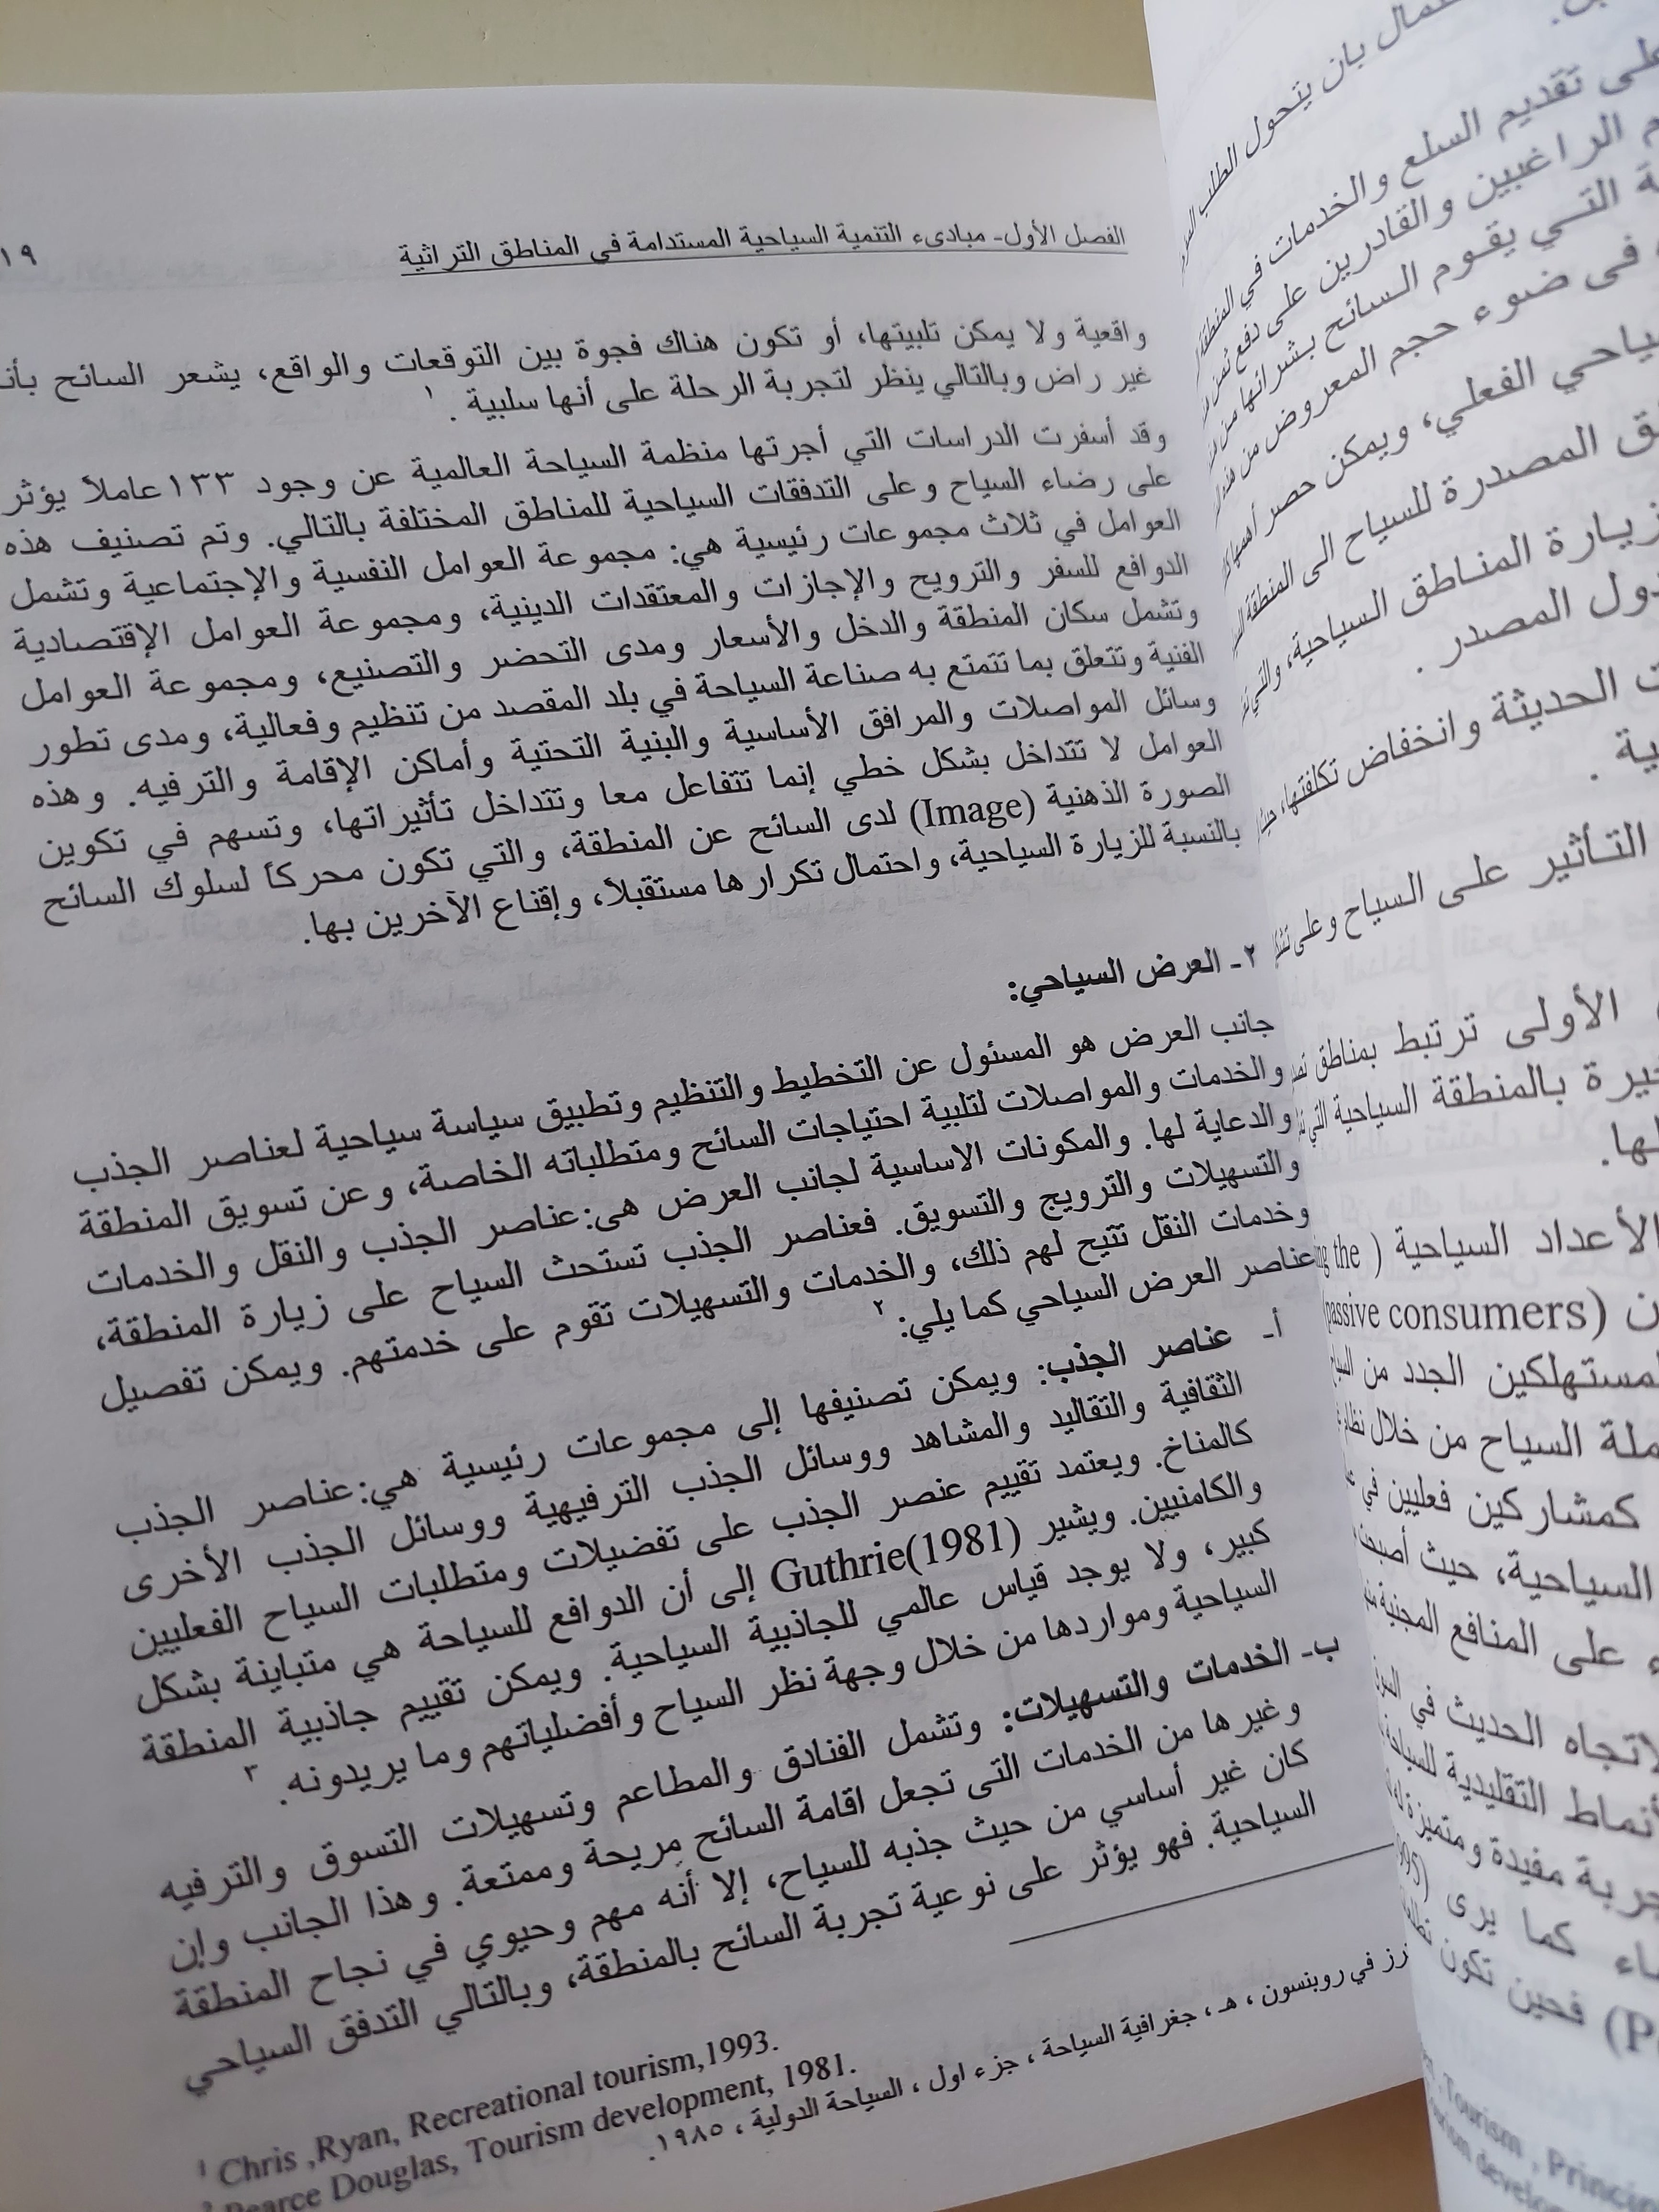 الفصل الأول- مبادىء التنمية السياحية المستدامة في المناطق التراثية
١٩
واقعية ولا يمكن تلبيتها، أو تكون هناك فجوة بين التوقعات والواقع، يشعر السائح
غير راض وبالتالي ينظر لتجربة الرحلة على أنها سلبية . ١
وقد أسفرت الدراسات التي أجرتها منظمة السياحة العالمية عن وجود ١٣٣ عاملاً يؤثر
على رضاء السياح وعلى التدفقات السياحية للمناطق المختلفة بالتالي. وتم تصنيف هذه
العوامل في ثلاث مجموعات رئيسية هي: مجموعة العوامل النفسية والإجتماعية وتشمل
الدوافع للسفر والترويح والإجازات والمعتقدات الدينية، ومجموعة العوامل الإقتصادية
وتشمل سكان المنطقة والدخل والأسعار ومدى التحضر والتصنيع، ومجموعة العوامل
الفنية وتتعلق بما تتمتع به صناعة السياحة في بلد المقصد من تنظيم وفعالية، ومدى تطور
وسائل المواصلات والمرافق الأساسية والبنية التحتية وأماكن الإقامة والترفيه. وهذه
العوامل لا تتداخل بشكل خطي إنما تتفاعل معا وتتداخل تأثيراتها، وتسهم في تكوين
الصورة الذهنية (Image) لدى السائح عن المنطقة، والتي تكون محركاً لسلوك السائح
بالنسبة للزيارة السياحية، واحتمال تكرارها مستقبلاً، وإقناع الآخرين بها.
٢- العرض السياحي:
جانب العرض هو المسئول عن التخطيط والتنظيم وتطبيق سياسة سياحية لعناصر الجذب
والخدمات والمواصلات لتلبية احتياجات السائح ومتطلباته الخاصة، وعن تسويق المنطقة
والدعاية لها. والمكونات الاساسية لجانب العرض هى: عناصر الجذب والنقل والخدمات
والتسهيلات والترويج والتسويق. فعناصر الجذب تستحث السياح على زيارة المنطقة،
وخدمات النقل تتيح لهم ذلك، والخدمات والتسهيلات تقوم على خدمتهم. ويمكن تفصيل
عناصر العرض السياحي كما يلي: ٢
أ- عناصر الجذب: ويمكن تصنيفها إلى مجموعات رئيسية هي: عناصر الجذب
الثقافية والتقاليد والمشاهد ووسائل الجذب الترفيهية ووسائل الجذب الأخرى
كالمناخ. ويعتمد تقييم عنصر الجذب على تفضيلات ومتطلبات السياح الفعليين
والكامنيين. ويشير Guthrie(1981) إلى أن الدوافع للسياحة هي متباينة بشكل
كبير، ولا يوجد قياس عالمي للجاذبية السياحية. ويمكن تقييم جاذبية المنطقة
السياحية ومواردها من خلال وجهة نظر السياح وأفضلياتهم وما يريدونه. ٣
ب- الخدمات والتسهيلات: وتشمل الفنادق والمطاعم وتسهيلات التسوق والترفيه
وغيرها من الخدمات التى تجعل اقامة السائح مريحة وممتعة. وهذا الجانب وإن
كان غير أساسي من حيث جذبه للسياح، إلا أنه مهم وحيوي في نجاح المنطقة
السياحية. فهو يؤثر على نوعية تجربة السائح بالمنطقة، وبالتالي التدفق السياحي
¹ Chris ,Ryan, Recreational tourism,1993.
² Pearce Douglas, Tourism development, 1981.
في روبنسون ، هـ ، جغرافية السياحة ، جزء اول ، السياحة الدولية ، ١٩٨٥.
بان يتحول الطلب
تقديم السلع والخدمات في المنطقة
الراغبين والقادرين على دفع ثمن
التي يقوم السائح بشرائها من
فى ضوء حجم المعروض من هذه
الفعلي، ويمكن حصر أهمها
المصدرة للسياح الى المنطقة
زيارة المناطق السياحية، والتي
المصدر .
الحديثة وانخفاض تكلفتها، حيث
التأثير على السياح وعلى
الأولى ترتبط بمناطق
بالمنطقة السياحية التي
لها.
الأعداد السياحية ( the
(passive consumers)
الجدد من
السياح من خلال
كمشاركين فعليين في
السياحية، حيث أصبحت
على المنافع
الحديث في
التقليدية للسياحة
مفيدة ومتميزة
كما يرى
فحين تكون
Tourism , Princip